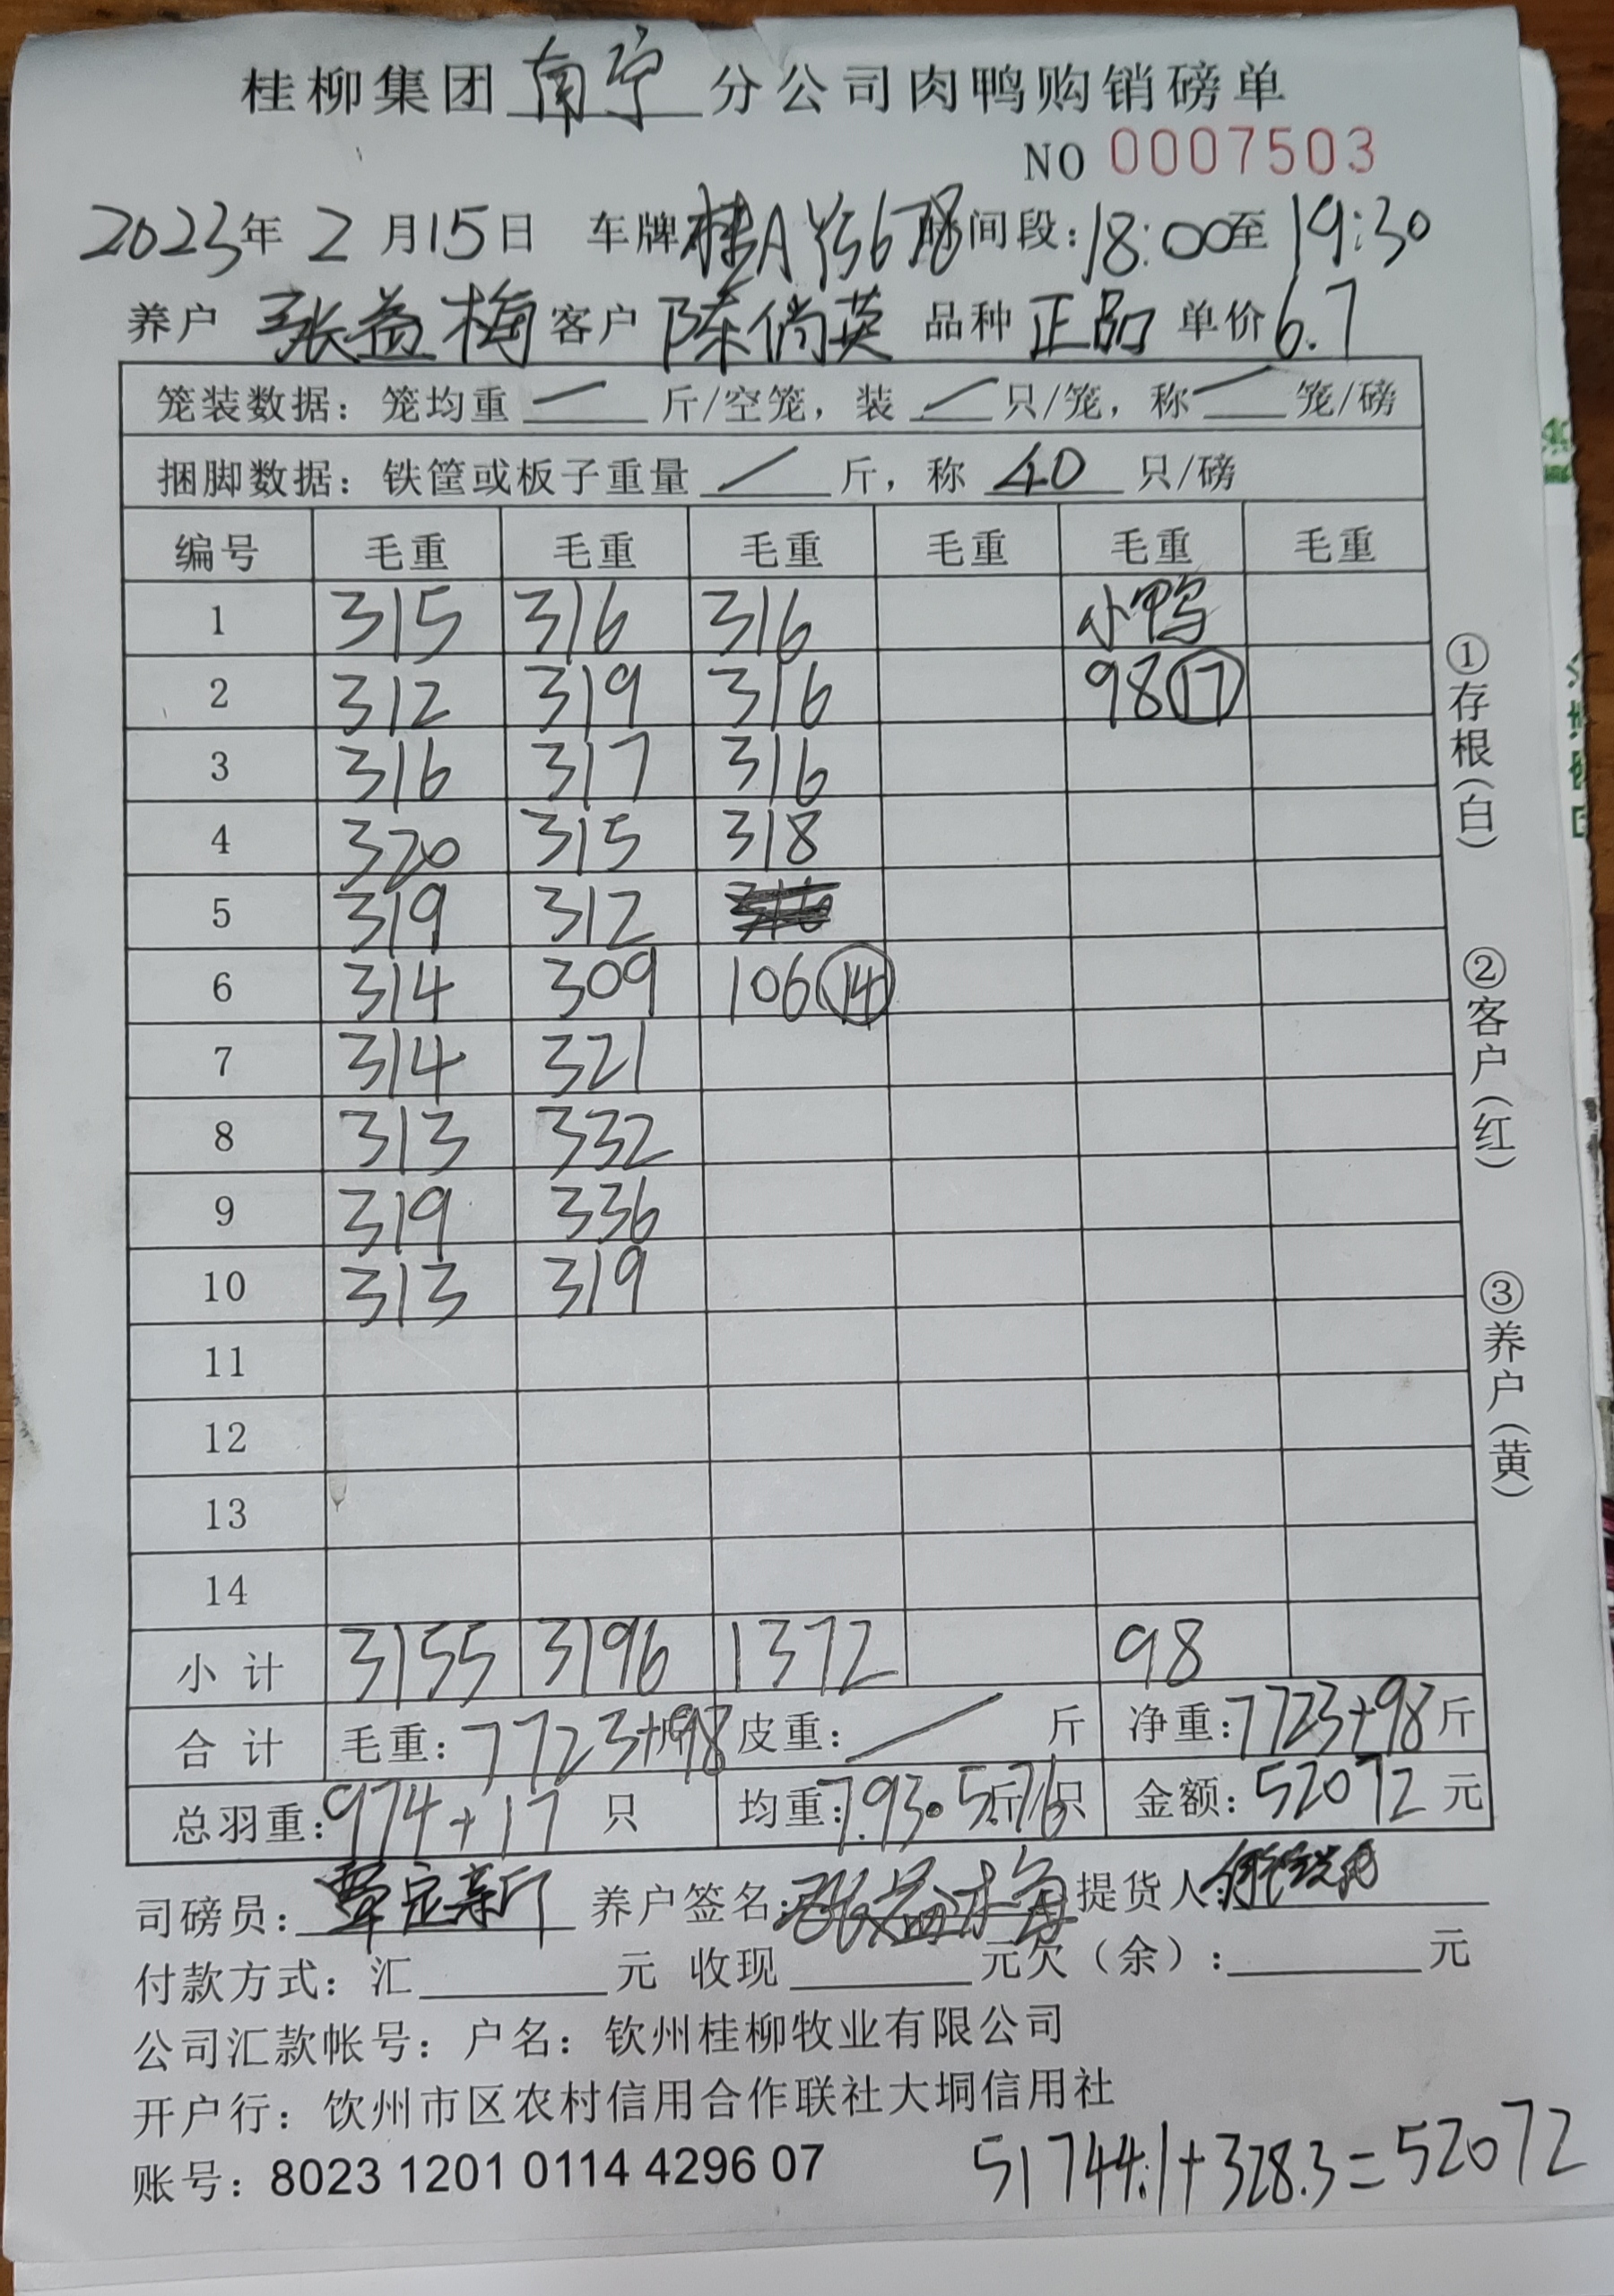 桂柳集团南宁分公司肉鸭购销磅单
NO 0007503
2023年2月15日 车牌桂A 时间段:18:00至19:30
养户 张益梅 客户 陈倘英 品种 正品 单价6.7
笼装数据: 笼均重 — 斤/空笼, 装 — 只/笼, 称 — 笼/磅
捆脚数据: 铁筐或板子重量 / 斤, 称 40 只/磅
编号 毛重 毛重 毛重 毛重 毛重 毛重
1 315 316 316 小鸭
2 312 319 316 98 ⑰
3 316 317 316
4 320 315 318
5 319 312
6 314 309 106 ⑭
7 314 321
8 313 332
9 319 336
10 313 319
11
12
13
14
小计 3155 3196 1372 98
合计 毛重: 7723+98斤 皮重: / 斤 净重: 7723+98斤
总羽重: 974+17 只 均重: 7.93. 5.76斤/只 金额: 52072 元
司磅员: 覃定新 养户签名: 张益梅 提货人:
付款方式: 汇 元 收现 元欠(余): 元
公司汇款帐号: 户名: 钦州桂柳牧业有限公司
开户行: 饮州市区农村信用合作联社大垌信用社
账号: 8023 1201 0114 4296 07
51744.1+328.3=52072
①存根(白)
②客户(红)
③养户(黄)